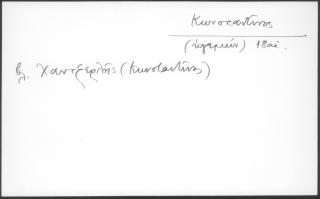 Κωνσταντῖνος
(ἡγεμών) 18αἰ.
βλ. Χαντζερλῆς (Κωνσταντῖνος)